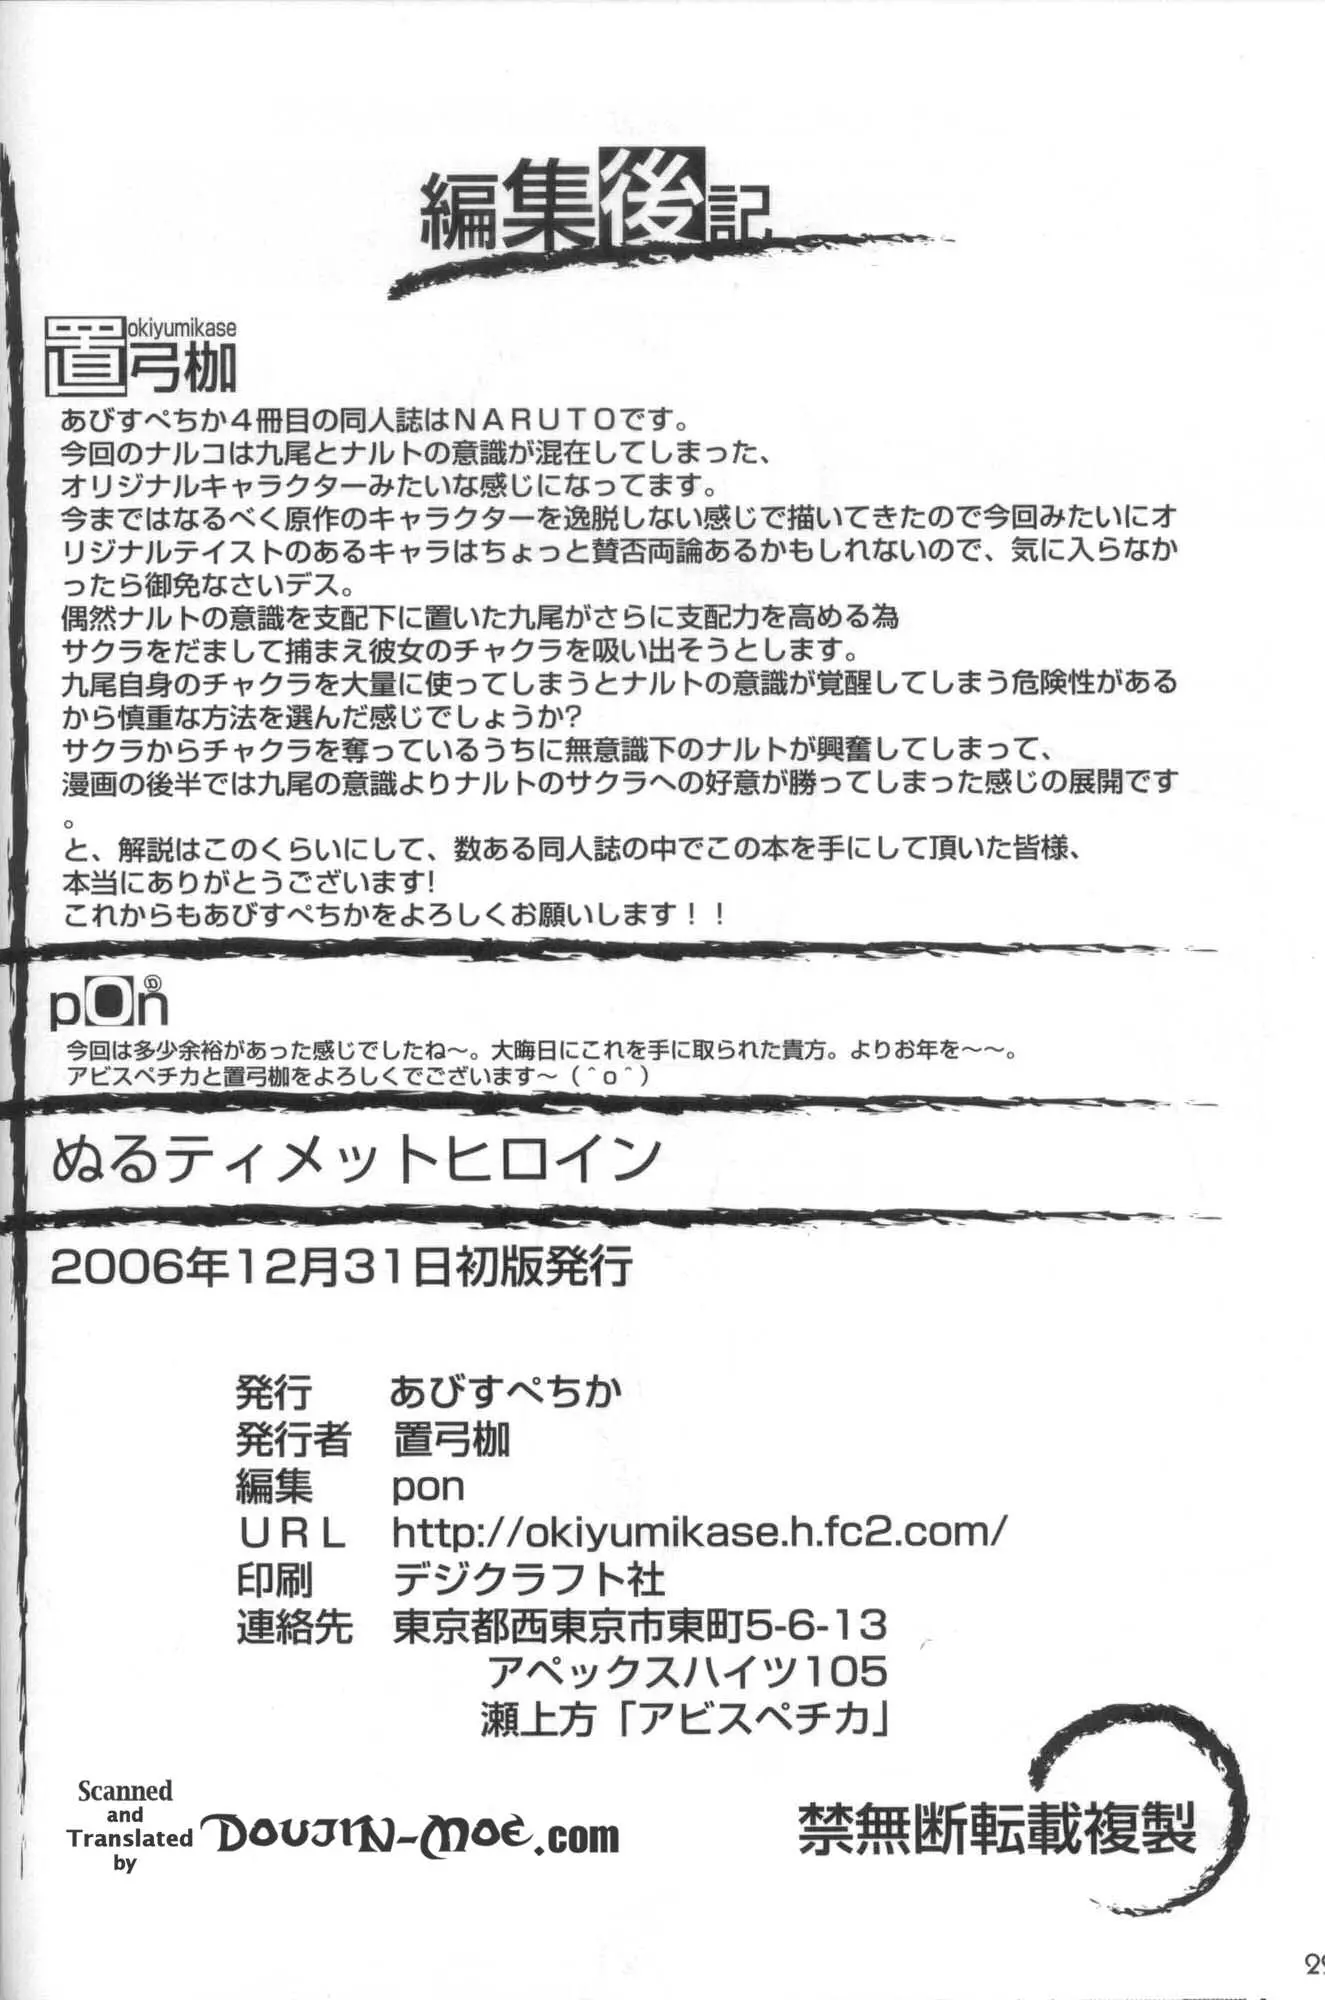 編集後記
okiyumikase
置弓枷
あびすぺちか４冊目の同人誌はＮＡＲＵＴＯです。
今回のナルコは九尾とナルトの意識が混在してしまった、
オリジナルキャラクターみたいな感じになってます。
今まではなるべく原作のキャラクターを逸脱しない感じで描いてきたので今回みたいにオ
リジナルテイストのあるキャラはちょっと賛否両論あるかもしれないので、気に入らなか
ったら御免なさいデス。
偶然ナルトの意識を支配下に置いた九尾がさらに支配力を高める為
サクラをだまして捕まえ彼女のチャクラを吸い出そうとします。
九尾自身のチャクラを大量に使ってしまうとナルトの意識が覚醒してしまう危険性がある
から慎重な方法を選んだ感じでしょうか?
サクラからチャクラを奪っているうちに無意識下のナルトが興奮してしまって、
漫画の後半では九尾の意識よりナルトのサクラへの好意が勝ってしまった感じの展開です
。
と、解説はこのくらいにして、数ある同人誌の中でこの本を手にして頂いた皆様、
本当にありがとうございます!
これからもあびすぺちかをよろしくお願いします！！
pon@
今回は多少余裕があった感じでしたね～。大晦日にこれを手に取られた貴方。よりお年を～～。
アビスペチカと置弓枷をよろしくでございます～（＾ｏ＾）
ぬるティメットヒロイン
2006年12月31日初版発行
発行 あびすぺちか
発行者 置弓枷
編集 pon
ＵＲＬ http://okiyumikase.h.fc2.com/
印刷 デジクラフト社
連絡先 東京都西東京市東町5-6-13
アペックスハイツ105
瀬上方「アビスペチカ」
禁無断転載複製
Scanned
and
Translated
by
DOUJIN-MOE.com
29